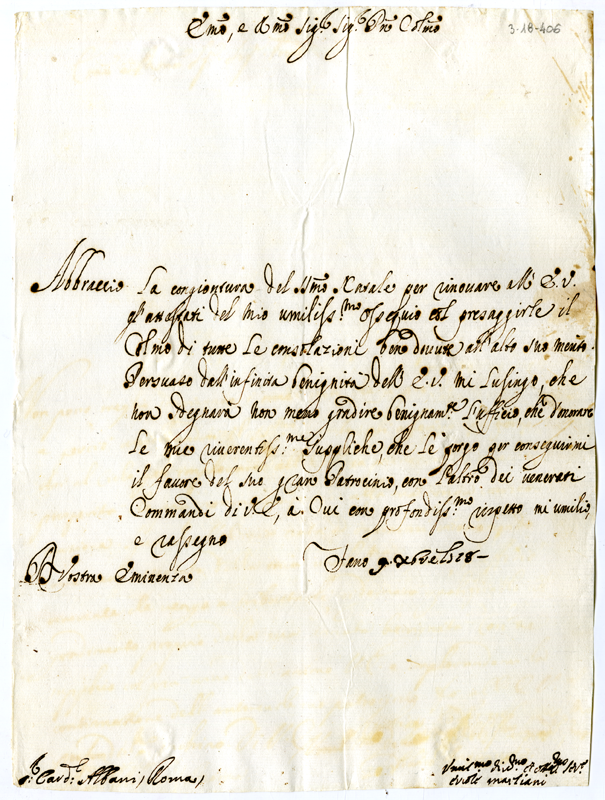 Emo, e Rmo Sig.r Sig.r Prne Colmo
3-18-406
Abbraccio la congiontura del Smo Natale per rinovare all' E.V.
gl'attestati del mio umiliss.mo ossequio col presaggirle il
Colmo di tutte le consolazioni ben dovute all'alto suo merito.
Persuaso dall'infinita benignità dell' E.V. mi lusingo, che
non sdegnarà non meno gradire benignam.te l'uffizio, che d'onorare
le mie riverentiss.me suppliche, che le porgo per conseguirmi
il favore del suo gran Patrocinio, con l'altro dei venerati
Commandi di V.E., à Cui con profondiss.mo rispetto mi umilio,
e rassegno
Di Vostra Eminenza
Fano 9. Xbre 1728
S.r Card.l Albani, Roma,
Umilmo divmo
Ercole Marliani